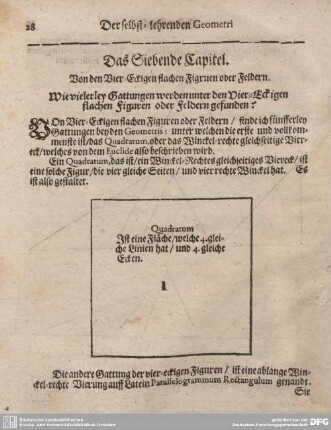 28 Der selbst-lehrenden Geometri
Das Siebende Capitel.
Von den Vier-Eckigen flachen Figuren oder Feldern.
Wie vielerley Gattungen werden unter den Vier-Eckigen
flachen Figuren oder Feldern gefunden?
VOn Vier-Eckigen flachen Figuren oder Feldern / finde ich fünfferley
Gattungen bey den Geometris: unter welchen die erste und vollkom-
menste ist / das Quadratum, oder das Winckel-rechte gleichseitige Vier-
eck / welches von dem Euclide also beschrieben wird.
Ein Quadratum, das ist / ein Winckel-Rechtes gleichseitiges Viereck / ist
eine solche Figur / die vier gleiche Seiten / und vier rechte Winckel hat. Es
ist also gestaltet.
Quadratum
Ist eine Fläche / welche 4. glei-
che Linien hat / und 4. gleiche
Ecken.
1
Die andere Gattung der vier-eckigen Figuren / ist eine ablange Win-
ckel-rechte Vierung auff Latein Parallelogrammum Rectangulum genandt.
Sie
DFG